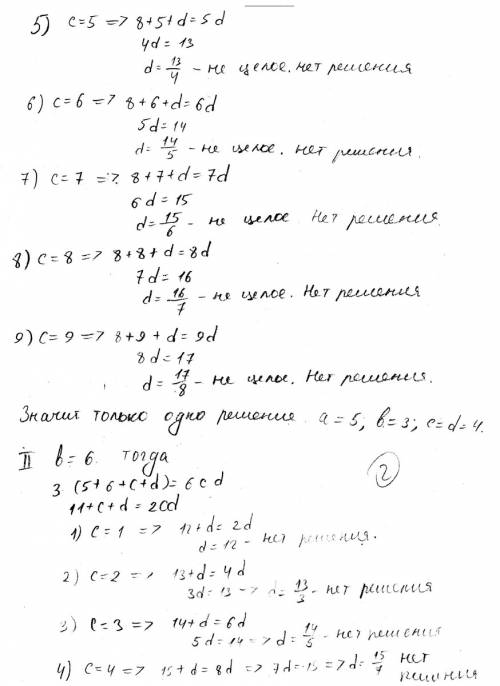 5) c=5 => 8+5+d=5d
4d=13
d=13/4 - не целое. нет решения
6) c=6 => 8+6+d=6d
5d=14
d=14/5 - не целое. нет решения.
7) c=7 => 8+7+d=7d
6d=15
d=15/6 - не целое. Нет решения
8) c=8 => 8+8+d=8d
7d=16
d=16/7 - не целое. Нет решения
9) c=9 => 8+9+d=9d
8d=17
d=17/8 - не целое. Нет решения.
Значит только одно решение. a=5; b=3; c=d=4.
II b=6. тогда
2
3·(5+6+c+d)=6cd
11+c+d=2cd
1) c=1 => 12+d=2d
d=12 - нет решения.
2) c=2 => 13+d=4d
3d=13 => d=13/3 - нет решения
3) c=3 => 14+d=6d
5d=14 => d=14/5 - нет решения
4) c=4 => 15+d=8d => 7d=15 => d=15/7 нет
решения